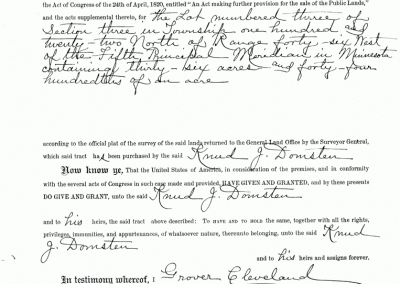 the Act of Congress of the 24th of April, 1820, entitled "An Act making further provision for the sale of the Public Lands,"
and the acts supplemental thereto, for the Lot numbered three of
Section three in Township one hundred and
twenty-two North of Range forty-six West
of the Fifth Principal Meridian in Minnesota
containing thirty-six acres and forty-four
hundredths of an acre
according to the official plat of the survey of the said lands returned to the General Land Office by the Surveyor General,
which said tract has been purchased by the said Knud J. Domsten
Now know ye, That the United States of America, in consideration of the premises, and in conformity
with the several acts of Congress in such case made and provided, HAVE GIVEN AND GRANTED, and by these presents
DO GIVE AND GRANT, unto the said Knud J. Domsten
and to his heirs, the said tract above described: TO HAVE AND TO HOLD the same, together with all the rights,
privileges, immunities, and appurtenances, of whatsoever nature, thereunto belonging, unto the said Knud
J. Domsten
and to his heirs and assigns forever.
In testimony whereof, I Grover Cleveland